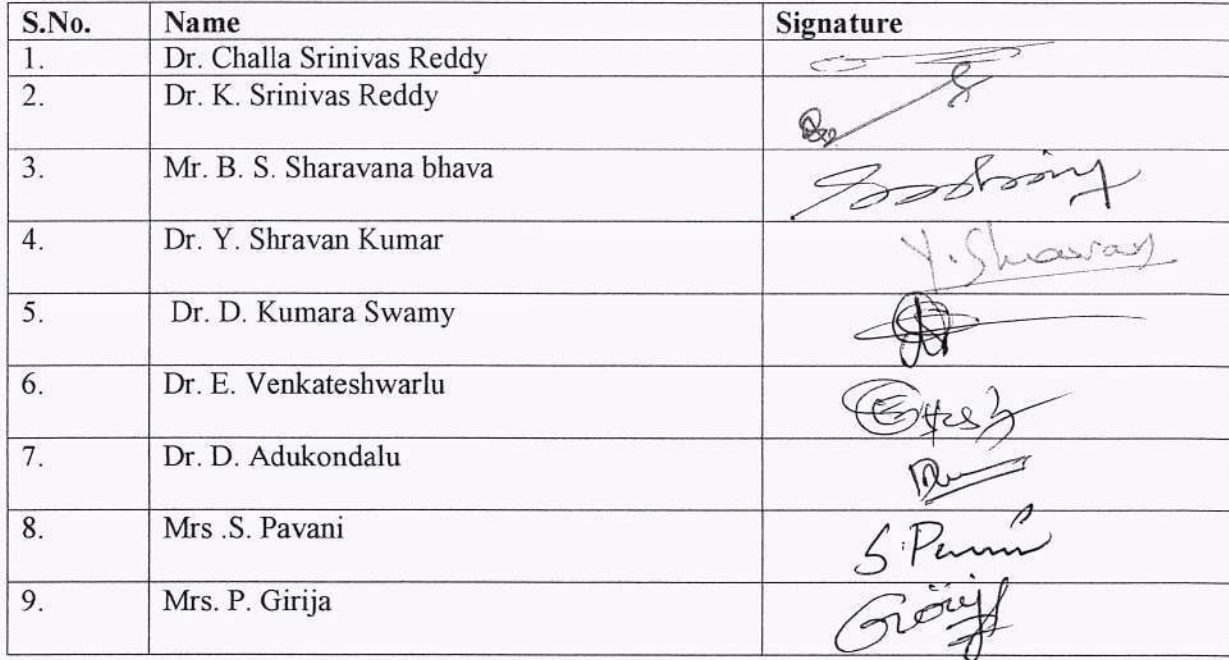 S.No. Name Signature
1. Dr. Challa Srinivas Reddy
2. Dr. K. Srinivas Reddy
3. Mr. B. S. Sharavana bhava
4. Dr. Y. Shravan Kumar Y. Shravan
5. Dr. D. Kumara Swamy
6. Dr. E. Venkateshwarlu
7. Dr. D. Adukondalu
8. Mrs .S. Pavani S. Pavani
9. Mrs. P. Girija Girija